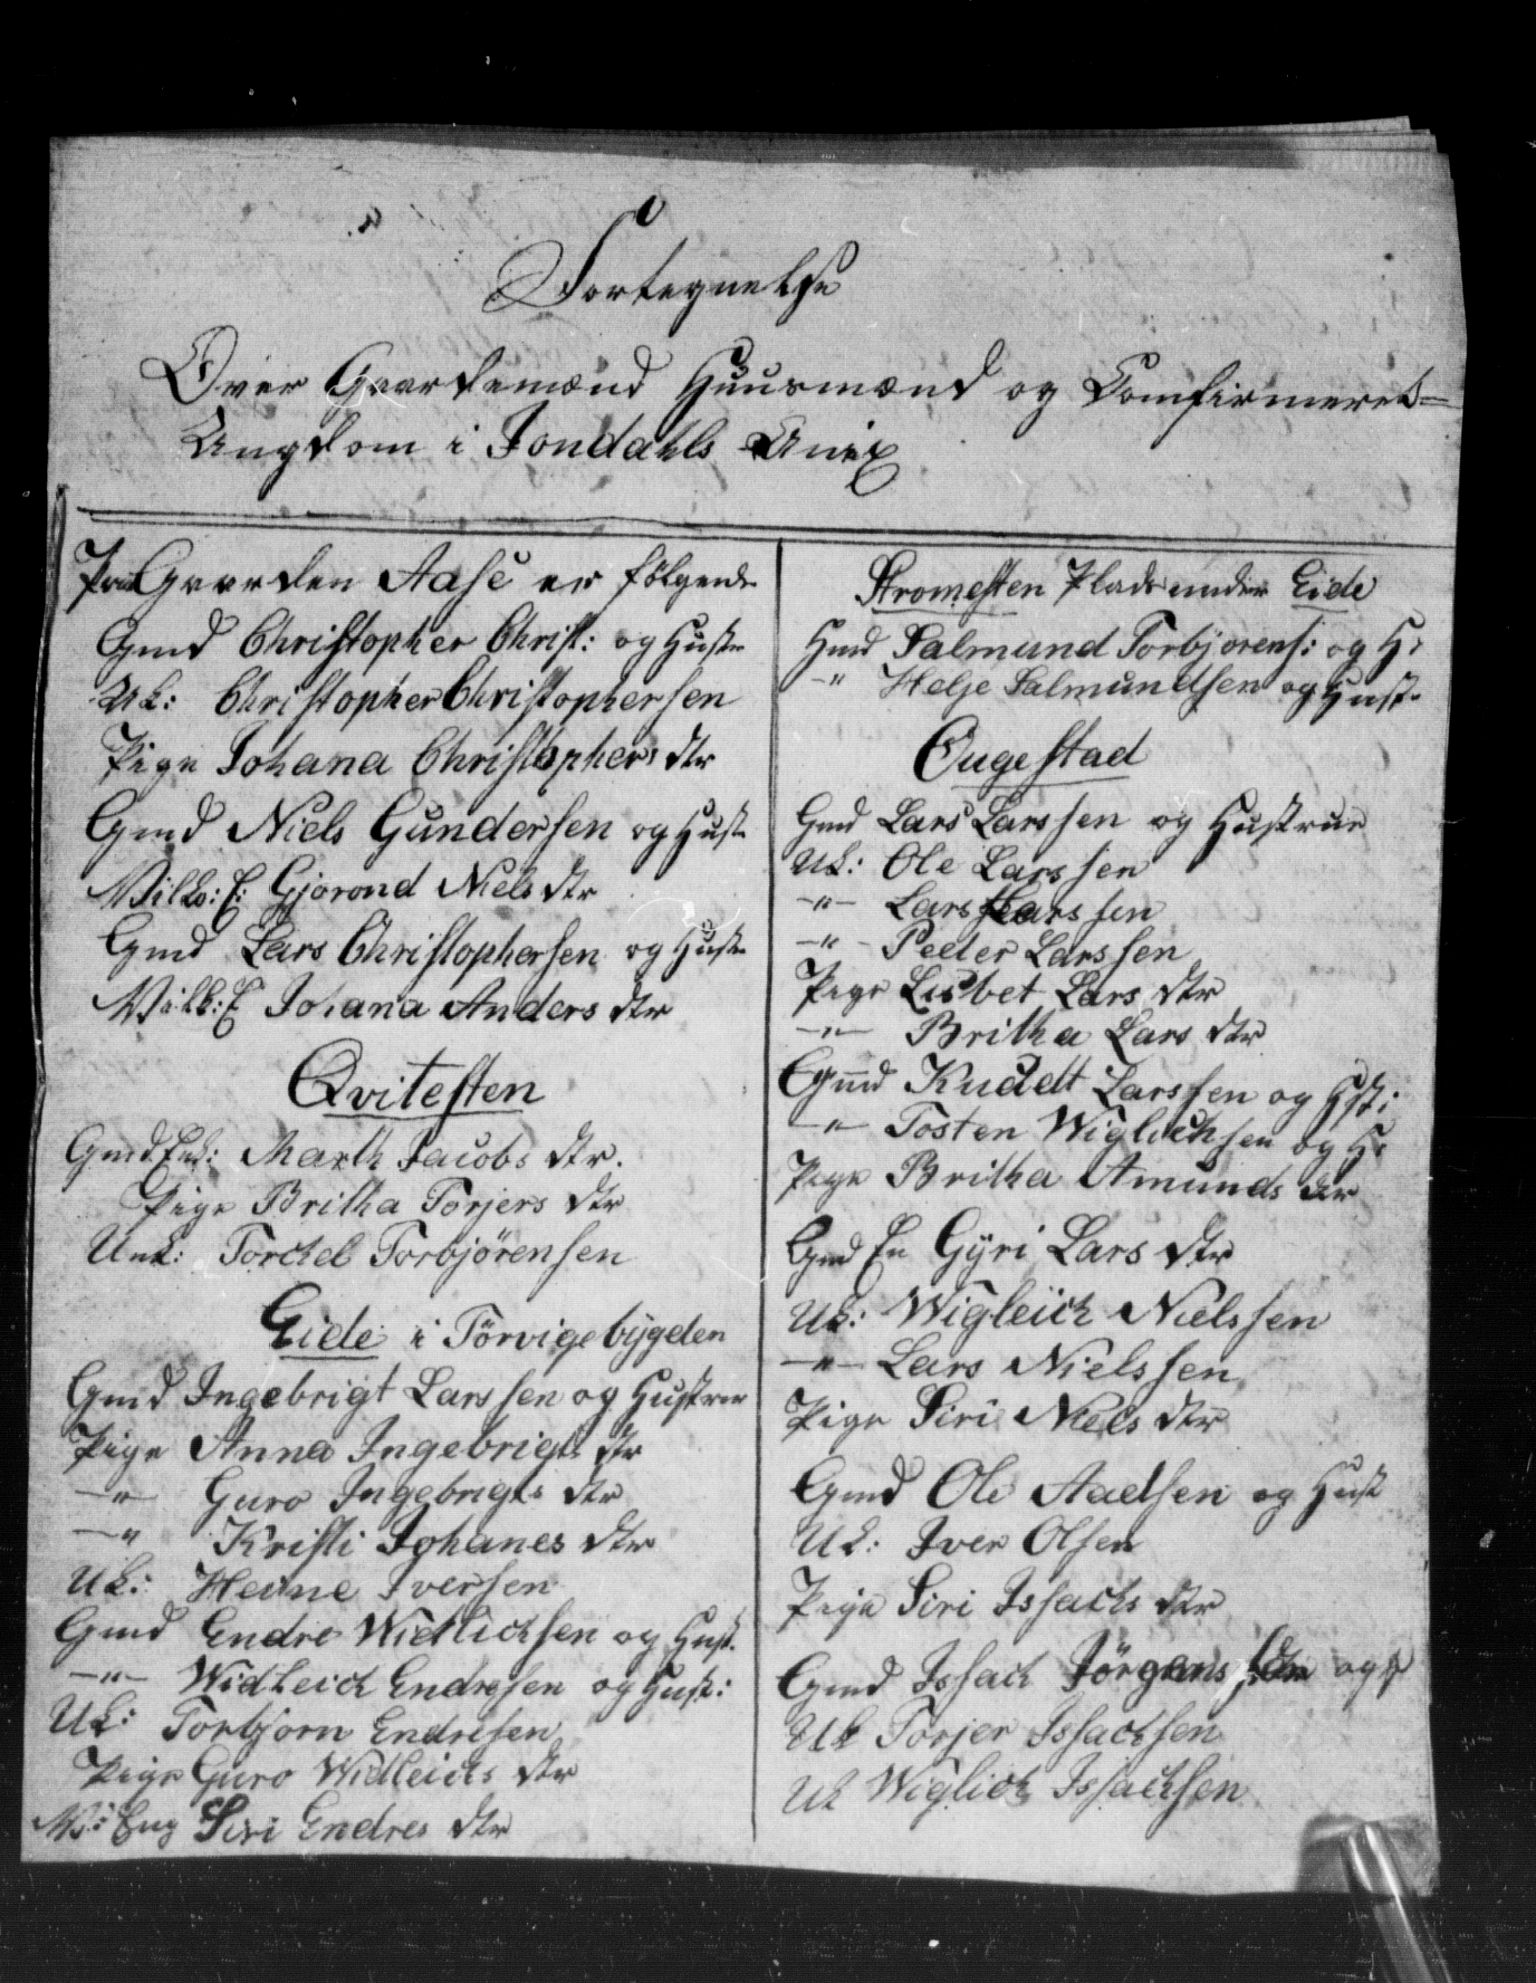 Fortegnelse
Over Gaardemænd Huusmænd og Comfirmeret
Ungdom i Jondahls Anex
Paa Gaarden Aase er følgende
Gmd Christopher Christ: og Hustr
Uk: Christopher Christophersen
Pige Johana Christophers dtr
Gmd Niels Gundersen og Hust
Vilk: E: Gjorond Niels dtr
Gmd Lars Christophersen og Hust
Vilk: E Johana Anders dtr
Qvitesten
Gmd Enk: Marth Jacobs dtr.
Pige Britha Torjers dtr
Unk: Torchel Torbjörensen
Eide i Törvigebygden
Gmd Ingebrigt Larssen og Hustrue
Pige Anna Ingebrigts dtr
-"- Guro Ingebrigts dtr
-" Kristi Johanes dtr
Uk: Heine Iversen
Gmd Endre Widlichsen og Hust.
-"- Widleich Endresen og Hust:
Uk: Torbjorn Endresen
Pige Guro Widleichs dtr
Siri Endres dtr
Stromesten Plads under Eide
Hmd Salmund Torbjorens: og H:
-" Helje Salmundsen og Hust.
Ougestad
Gmd Lars Larssen og Hustrue
Uk: Ole Larssen
-"- Lars Larssen
-"- Peder Larssen
Pige Lisbet Lars dtr
-"- Britha Lars dtr
Gmd Knudt Larssen og Hst:
-"- Tosten Wiglichsen og H:
Pige Britha Amunds dtr
Gmd En Gyri Lars dtr
Uk: Wigleich Nielssen
-"- Lars Nielssen
Pige Siri Niels dtr
Gmd Ole Aadsen og Hust
Uk: Iver Olsen
Pige Siri Issachs dtr
Gmd Issach Jörgens og
Uk Torjer Issachsen
Uk Wiglich Issachsen